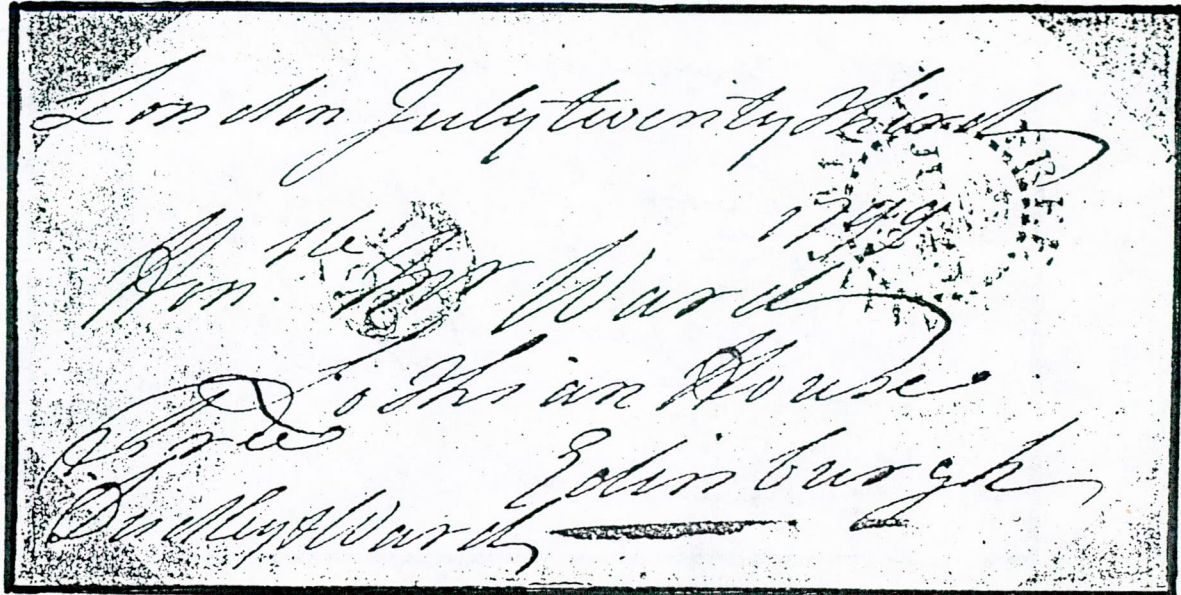 London July twenty third
1799
Hon.ble Mr Ward
Lothian House
Free Edinburgh
Dudley & Ward